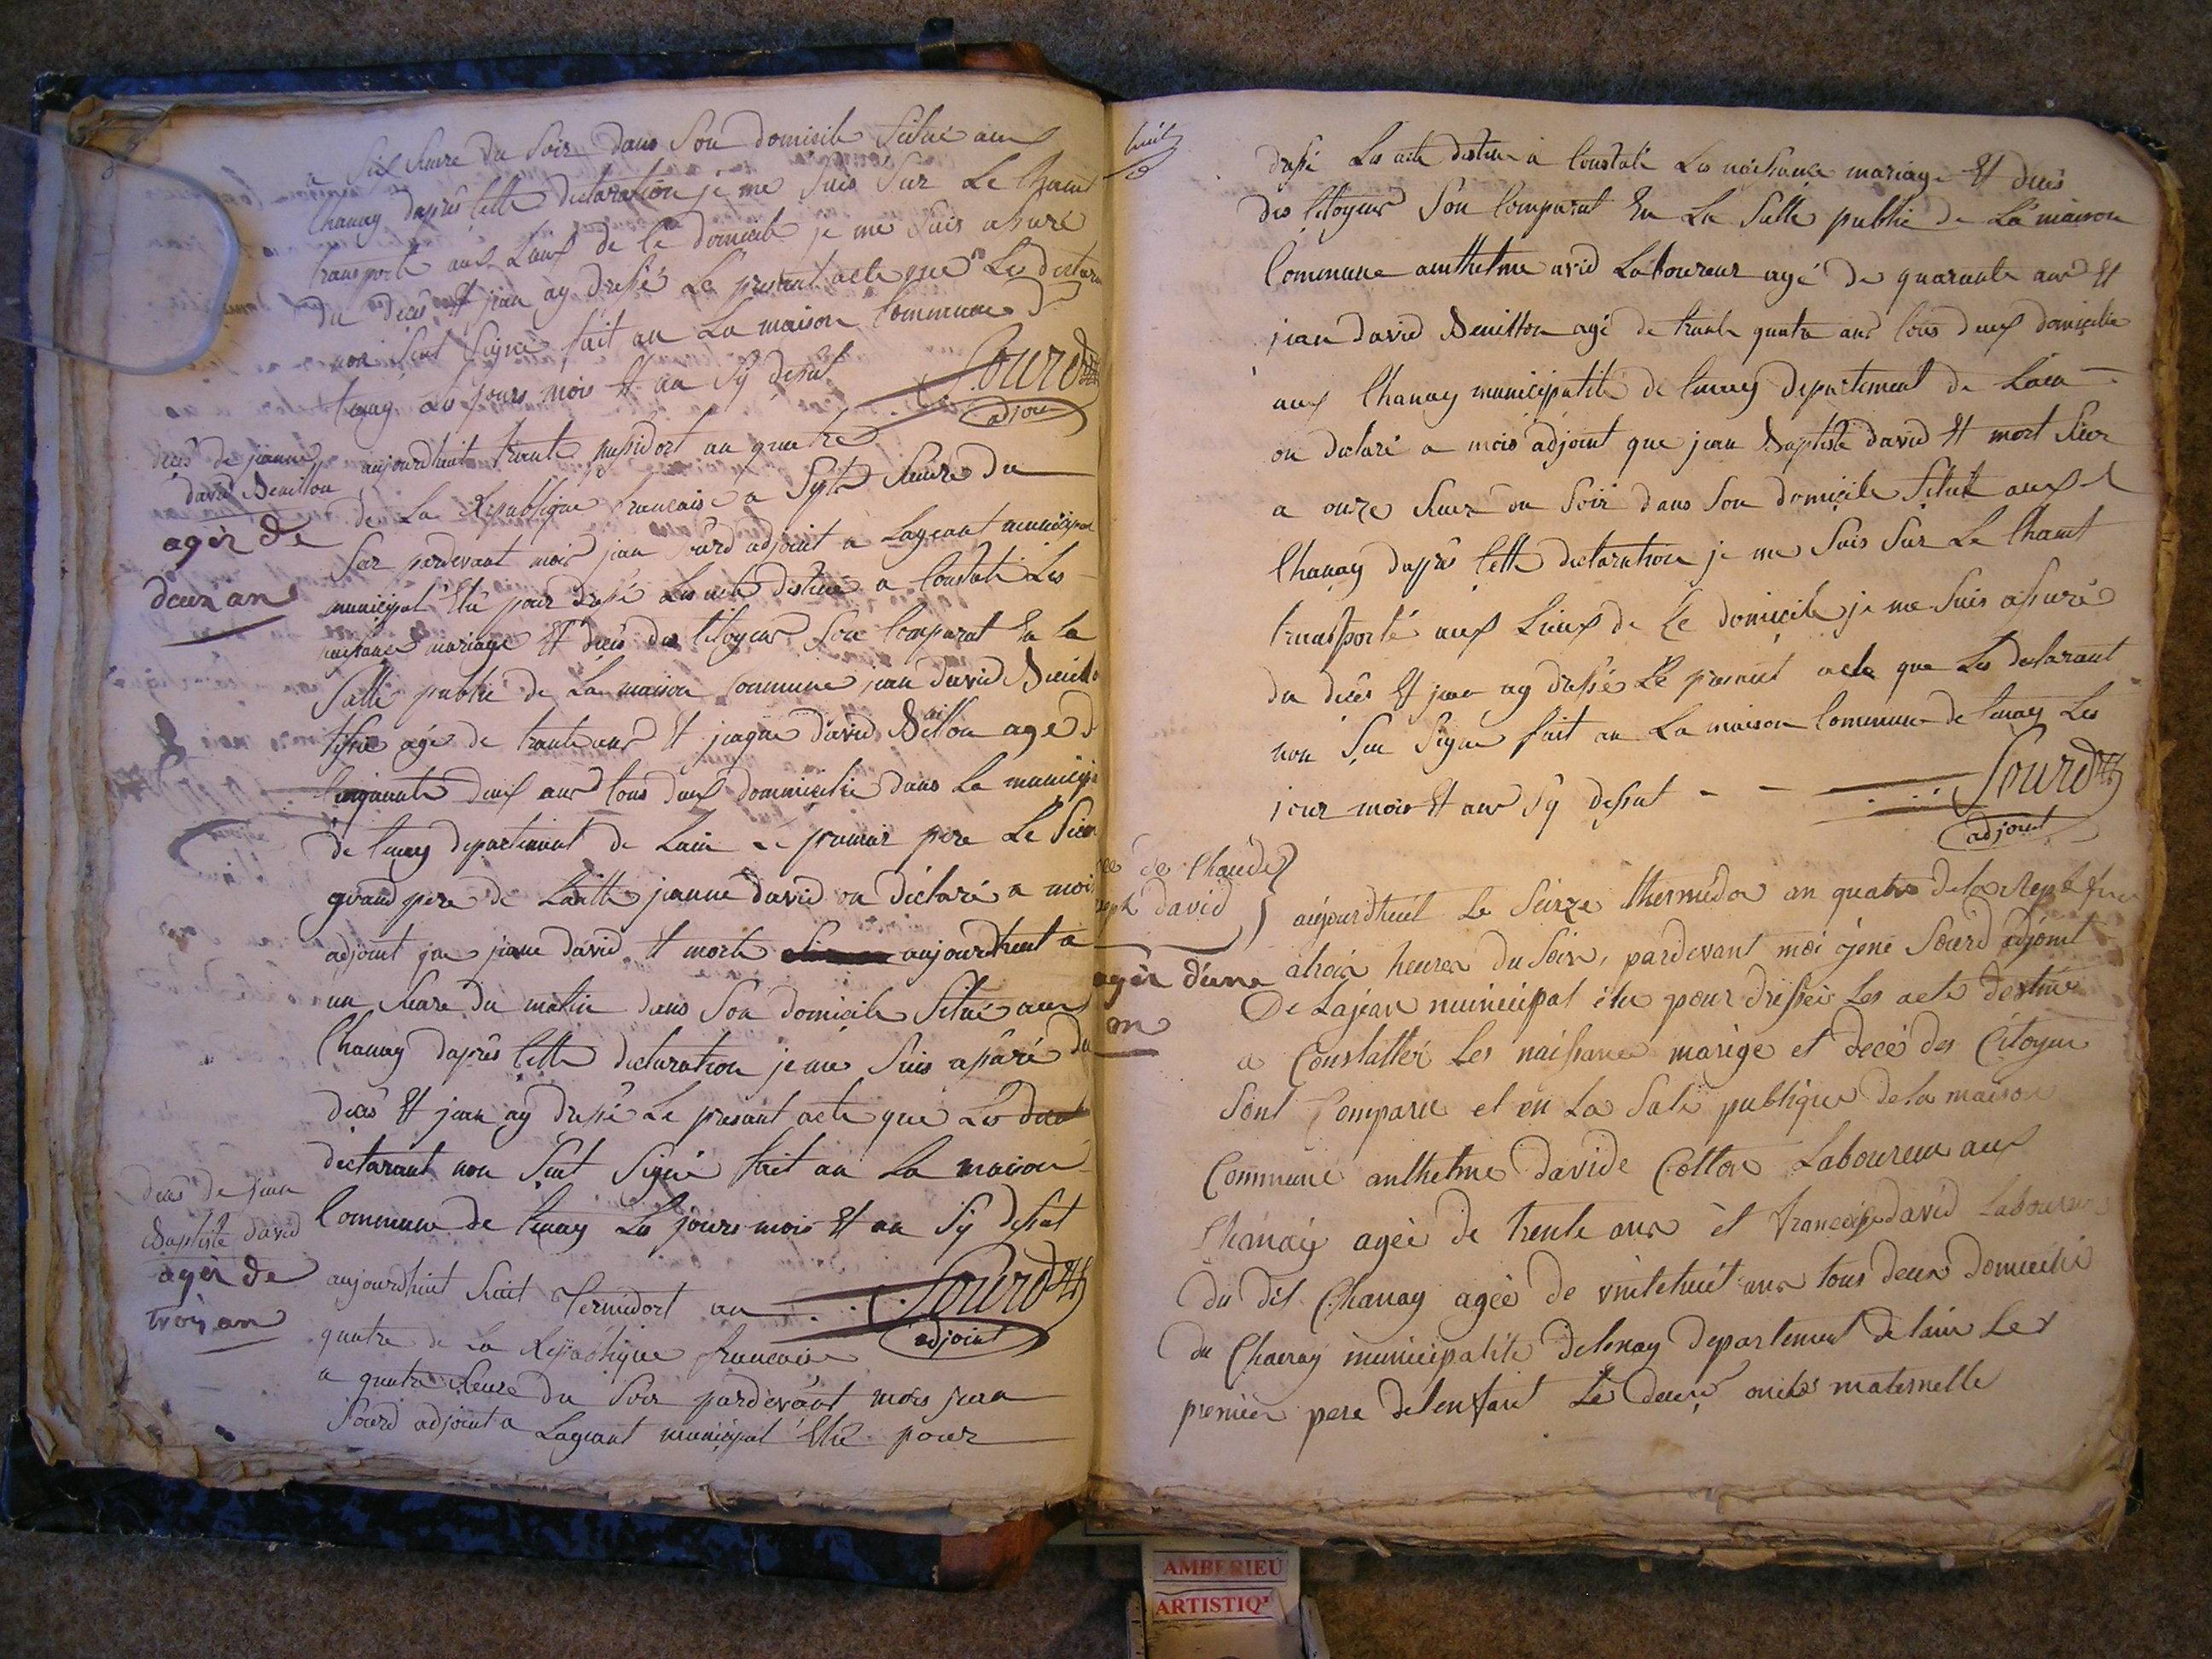 a Six heure du Soir dans Son domicile Situé aux
Chanay daprès Cette declaration je me Suis Sur Le Chamt
transporté aux Lieux de Ce domicile je me Suis assuré
du deces Et jean ay dressé Le present acte que Les declara
non Sint Signé fait an La maison Commune d
tenay Les jours mois Et an Sy desut
Sourd
adjoin
deces de janne
david Benillon
agér de
deux an
aujourdhuit trante messidort an quatre
de La Republique francaise a Septe heure du
Soir pardevant mois jean Sourd adjoint a Lageant municipal
municipal Elu pour dressé Les acte destiné a Constaté Les
naissance mariage Et deces des Citoyens Son Comparut En La
Salle publié de La maison Commune jean david Benillo
tissié agé de trante ans Et jaque david Billon age d
Cinquante deux ans tous deux dommicilié dans La municipa
de tenay departement de Lain Le premier pere Le Segon
grand pere de Laditte janne david on declaré a mois
adjoint que jane david Et morte aujourdhuit a
un heure du matin dans Son domicile Situé aux
Chanay daprès Cette declaration je me Suis assuré du
deces Et jean ay dressé Le present acte que Les
declarant non Sint Signé fait an La maison
Commune de tenay Les jours mois Et an Sy desut
Sourd
adjoint
deces de jean
Baptiste david
agér de
trois an
aujourdhuit huit termidort an
quatre de La Republique francaise
a quatre heure du Soir pardevant mois jean
Sourd adjoint a Lageant municipal Elu pour
huit
dressé Les acte destiné a Constaté Les naissance mariage Et deces
des Citoyens Son Comparut En La Salle publié de La maison
Commune anthelme david Laboureur agé de quarante ans Et
jean david Benillon agé de trante quatre ans tous deux domicilie
aux Chanay municipalité de tenay departement de Lain
on declaré a mois adjoint que jean Baptiste david Et mort hier
a onze heure du Soir dans Son domicile Situé aux
Chanay daprès Cette declaration je me Suis Sur Le Chamt
transporté aux Lieux de Ce domicile je me Suis assuré
du deces Et jean ay dressé Le present acte que Les declarant
non Sin Signé fait an La maison Commune de tenay Les
jour mois Et ans Sy desut
Sourd
adjoint
de Chaude
seph david
agér d'une
an
aujourdhuit Le Seize thermidor an quatre de la Repub fran
a trois heures du Soir, pardevant moi jene Sourd adjoint
De Lajean municipal élu pour dresser Les acte destiné
a Constatter Les naissance marige et decé des Citoyen
Sont Comparu et en La Sale publique de la maison
Commune anthelme davide Cotton Laboureur aux
Chanay agée de trente ans et francois david Laboureur
du dit Chanay agée de vintehuit ans tous deux domicilié
du Chanay municipalité detenay departement de lain Le
premier pere de lenfant Le deux oncle maternelle
AMBERIEU
ARTISTIQ